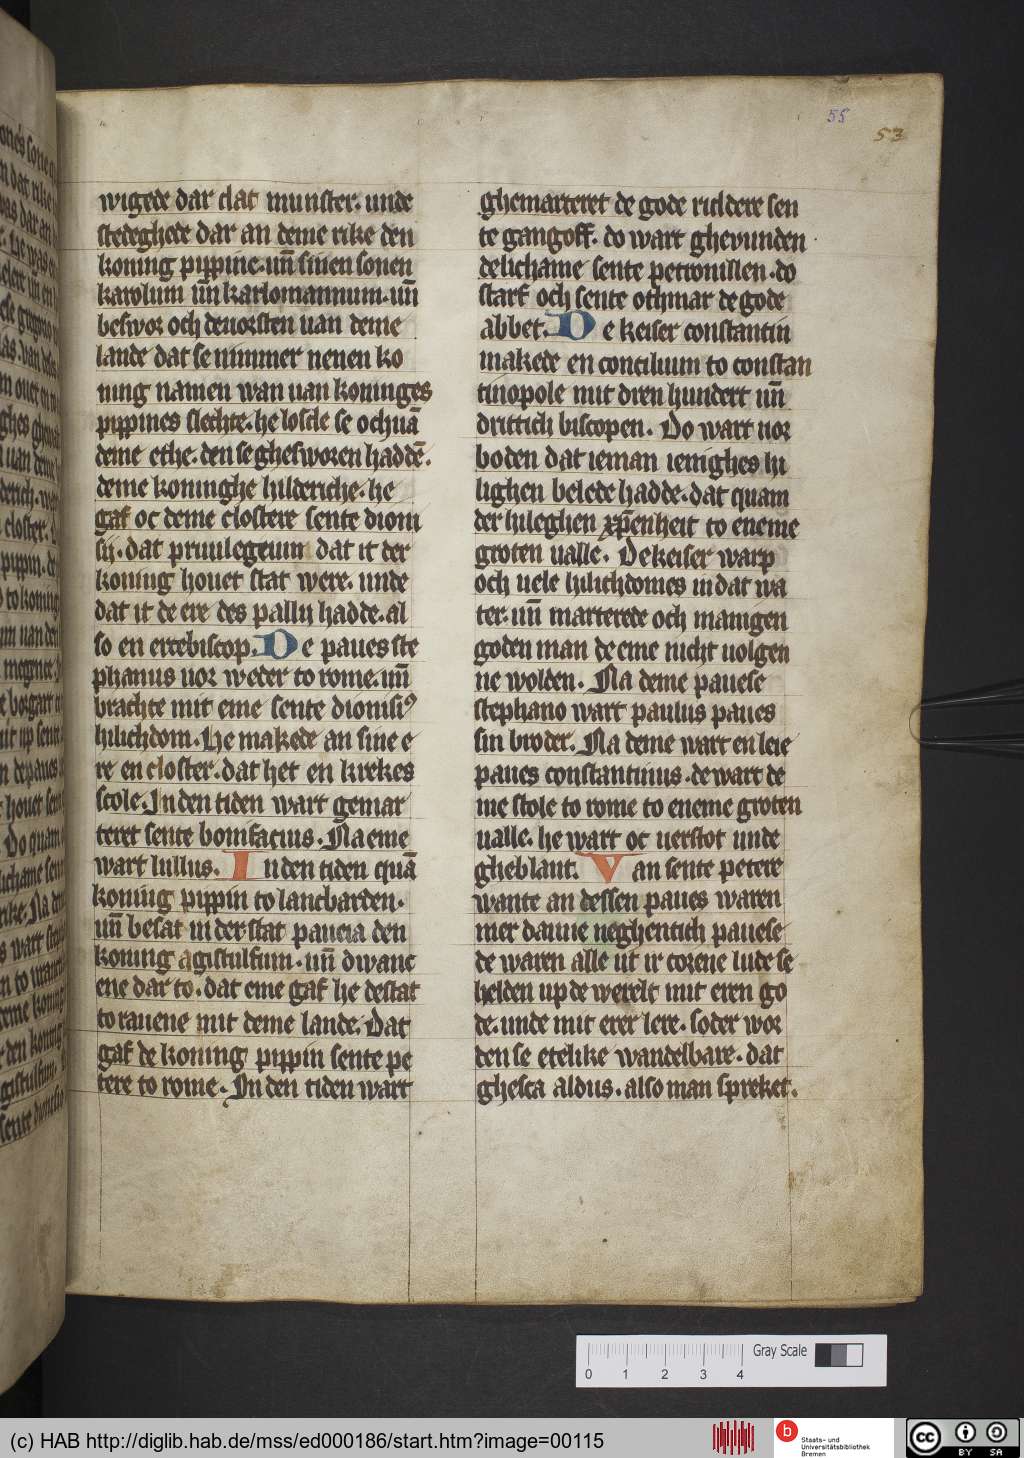 55
53
wigede dar dat munster. unde
stedeghede dar an deme rike den
koning pippine. uñ sinen sonen
karolum uñ karlomannum. uñ
beswor och denorsten uan deme
lande dat se nimmer nenen ko
ning namen wan uan koninges
pippines slechte. he losde se och uā
deme ethe. den se ghesworen haddē.
deme koninghe hilderiche. he
gaf oc deme clostere sente dioni
sij. dat priuilegeium dat it der
koning houet stat were. unde
dat it de ere des pallij hadde. al
so en ercebiscop. De paues ste
phanus uor weder to rome. uñ
brachte mit eme sente dionisiꝰ
hilichdom. He makede an sine e
re en closter. dat het en krekes
scole. In den tiden wart gemar
teret sente bonifacius. Na eme
wart lullus. In den tiden quā
koning pippin to lancbarden.
uñ besat in der stat paueia den
koning agistulfum. uñ dwanc
ene dar to. dat eme gaf he de stat
to rauene mit deme lande. Dat
gaf de koning pippin sente pe
tere to rome. In den tiden wart
ghemarteret de gode riddere sen
te gangoff. do wart gheuunden
de lichame sente petronillen. do
starf och sente othmar de gode
abbet. De keiser constantin
makede en concilium to constan
tinopole mit dren hundert uñ
drittich biscopen. Do wart uor
boden dat ieman ienighes hi
lighen belede hadde. dat quam
der hileghen xp̄enheit to eneme
groten ualle. De keiser warp
och uele hilichdomes in dat wa
ter. uñ marterede och manigen
goden man de eme nicht uolgen
ne wolden. Na deme pauese
stephano wart paulus paues
sin broder. Na deme wart en leie
paues constantinus. de wart de
me stole to rome to eneme groten
ualle. he wart oc uerstot unde
gheblant. Van sente petere
wante an dessen paues waren
mer danne neghentich pauese
de waren alle ut ir corene lude se
helden up de werelt mit eren go
de. unde mit erer lere. soder wor
den se etelike wandelbare. dat
ghesca aldus. also man spreket.
Gray Scale
0 1 2 3 4
(c) HAB http://diglib.hab.de/mss/ed000186/start.htm?image=00115
b
Staats- und
Universitätsbibliothek
Bremen
cc
BY SA